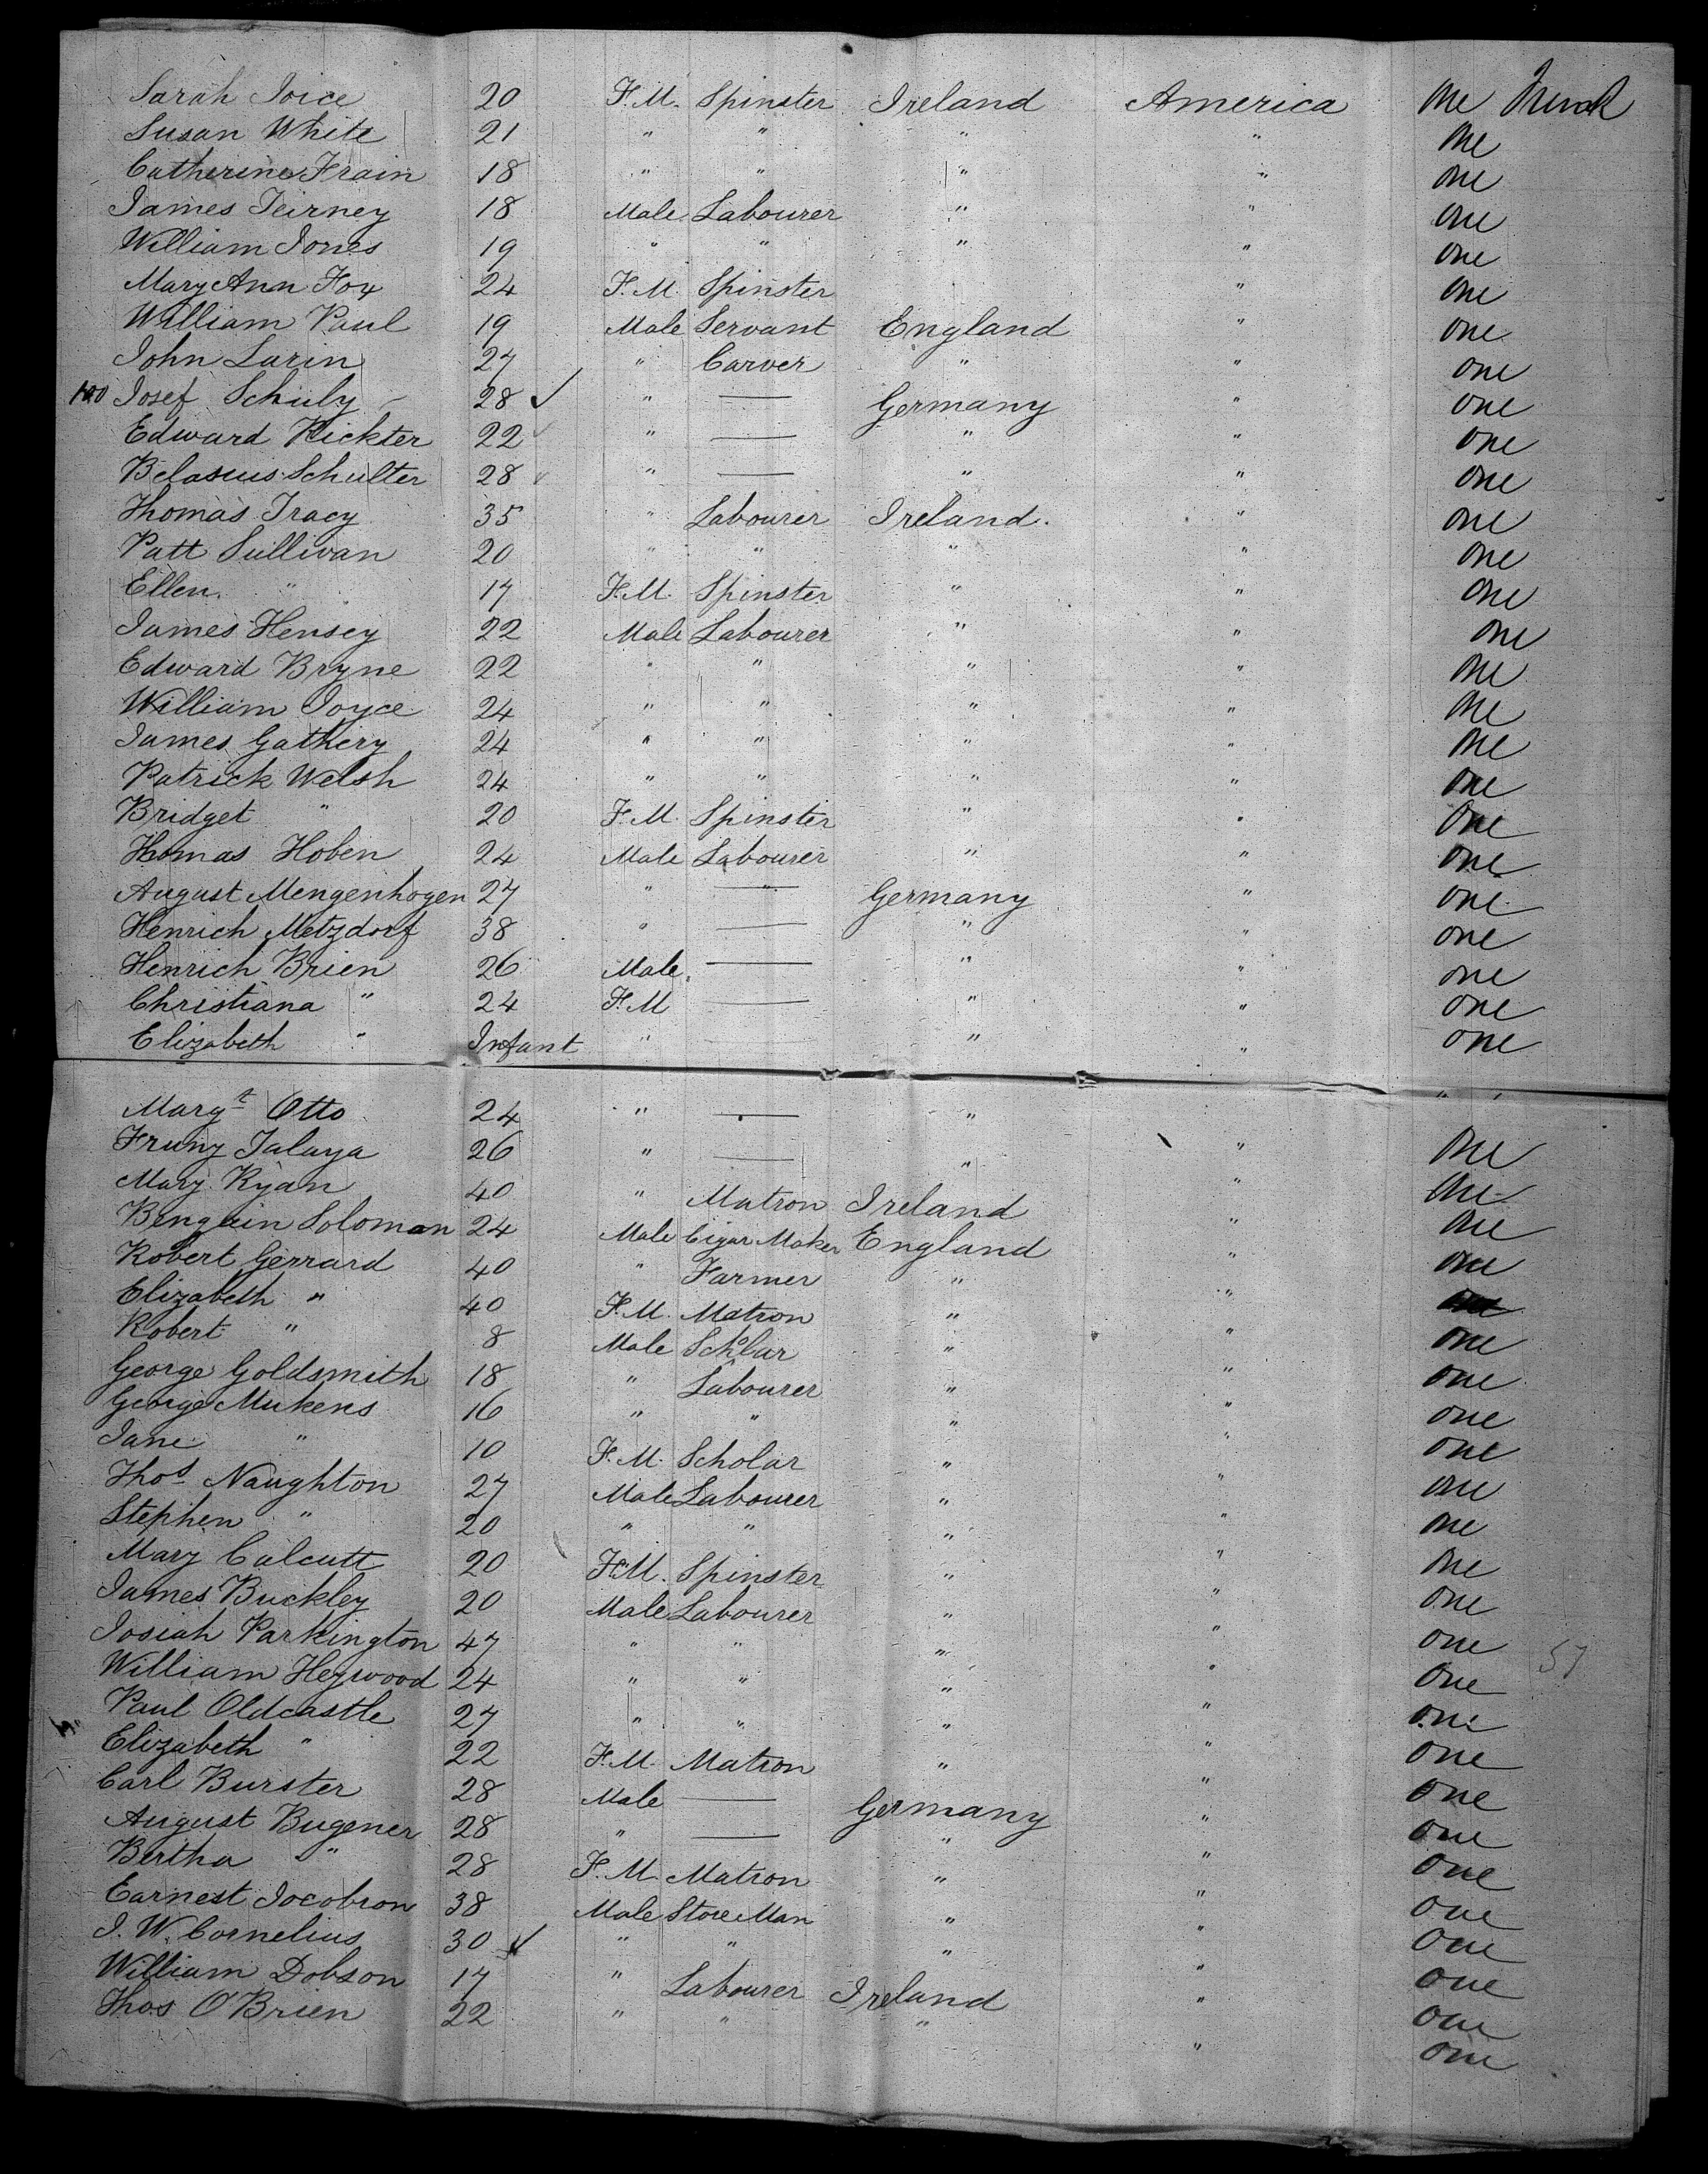 Sarah Joice 20 F.M. Spinster Ireland America one Trunk
Susan White 21 " " " " one
Catherine Frain 18 " " " " one
James Teirney 18 Male Labourer " " one
William Jones 19 " " " " one
Mary Ann Fox 24 F.M. Spinster " one
William Paul 19 Male Servant England " one
John Larin 27 " Carver " " one
100 Josef Schuly 28 ✓ " — Germany " one
Edward Rickter 22 ✓ " — " " one
Belasius Schulter 28 ✓ " — " " one
Thomas Tracy 35 " Labourer Ireland. " one
Patt Sullivan 20 " " " " one
Ellen " 17 F.M. Spinster " " one
James Hensey 22 Male Labourer " " one
Edward Bryne 22 " " " " one
William Joyce 24 " " " " one
James Gathery 24 " " " " one
Patrick Welsh 24 " " " " one
Bridget " 20 F.M. Spinster " " one
Thomas Hoben 24 Male Labourer " " one
August Mengenhogen 27 " — Germany " one
Henrich Metzdorf 38 " — " " one
Henrich Brien 26 Male — " " one
Christiana " 24 F.M — " " one
Elizabeth " Infant " — " " one
Margt Otto 24 " — " "
Frunz Talaya 26 " — " " one
Mary Ryan 40 " Matron Ireland " one
Bengain Soloman 24 Male Cigar Maker England " one
Robert Gerrard 40 " Farmer " " one
Elizabeth " 40 F.M. Matron " "
Robert " 8 Male Scholar " " one
George Goldsmith 18 " Labourer " " one
George Mukens 16 " " " " one
Jane " 10 F.M. Scholar " " one
Thos Naughton 27 Male Labourer " " one
Stephen " 20 " " " " one
Mary Calcutt 20 F.M. Spinster " " one
James Buckley 20 Male Labourer " " one
Josiah Parkington 47 " " " " one 57
William Heywood 24 " " " " one
Paul Oldcastle 27 " " " " one
Elizabeth " 22 F.M. Matron " " one
Carl Burster 28 Male — Germany " one
August Bugener 28 " — " " one
Bertha " 28 F.M. Matron " " one
Earnest Jocobson 38 Male Store Man " " one
J. W. Cornelius 30 ✓ " " " " one
William Dobson 17 " Labourer Ireland " one
Thos O'Brien 22 " " " " one
one